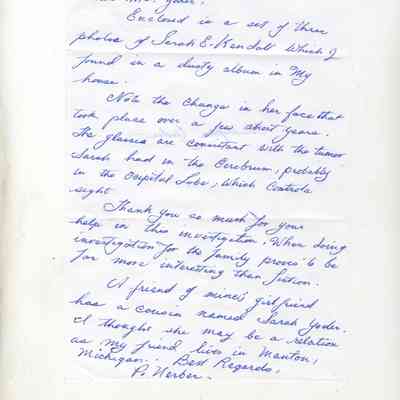 Mrs. Yoder,
Enclosed is a set of three
photos of Sarah E. Kendall which I
found in a dusty album in My
house.
Note the change in her face that
took place over a few short years.
The glasses are consistant with the tumor
Sarah had in the Cerebrum, probably
in the Occipital Lobe, which controls
sight
Thank you so much for your
help in this investigation. When doing
investigation for the family proves to be
far more interesting than fiction.
A friend of mine's girlfriend
has a cousin named Sarah Yoder.
I thought she may be a relation
as my friend lives in Manton,
Michigan. Best Regards,
P. Nerber